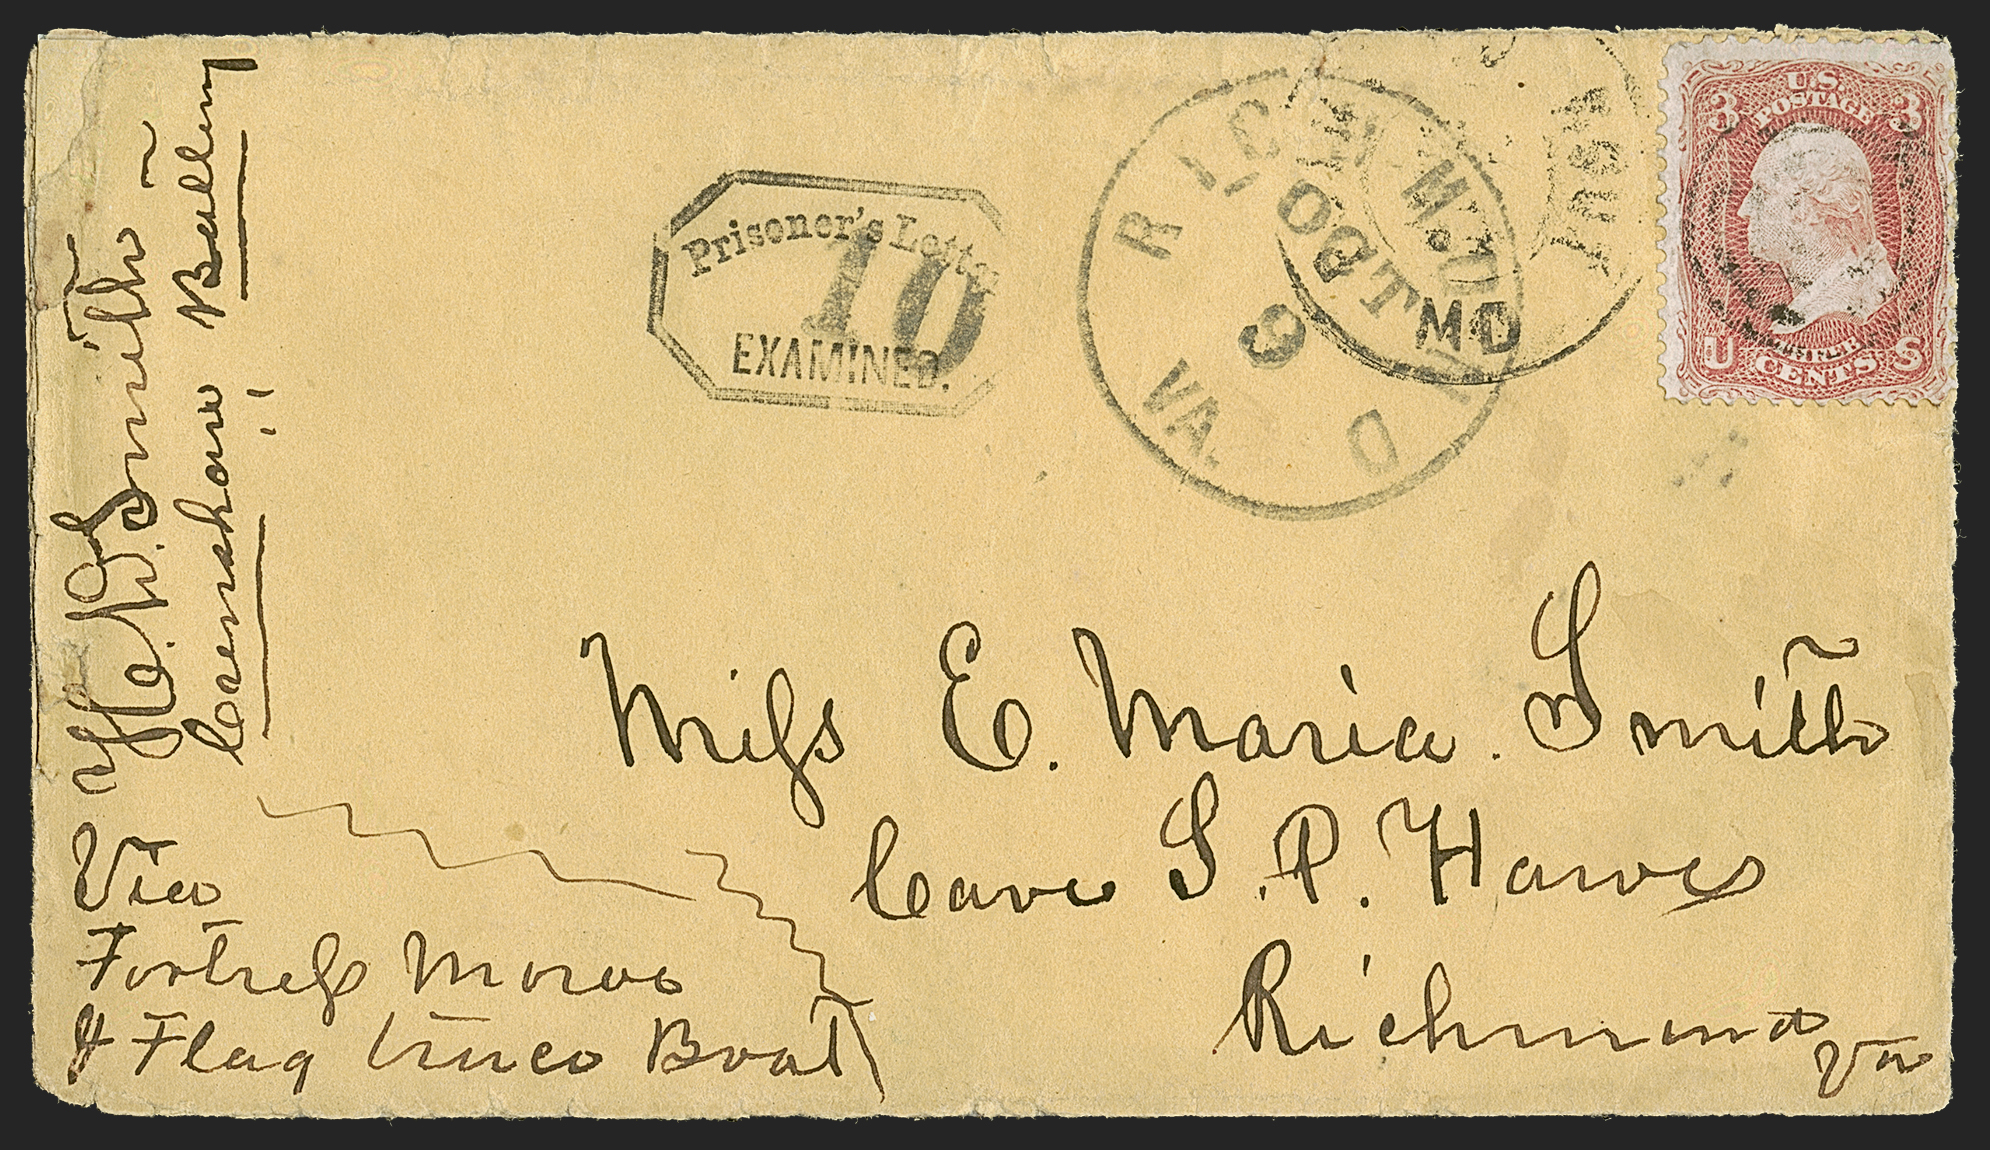 H. W. Smith
Crenshaw Battery
Prisoner's Letter
10
EXAMINED.
RICHMOND
OCT
VA.
MD
U.S.
POSTAGE
3 3
U S
CENTS
Miss E. Maria. Smith
Care S. P. Hawes
Richmond
Va
Via
Fortress Monroe
& Flag truce Boat